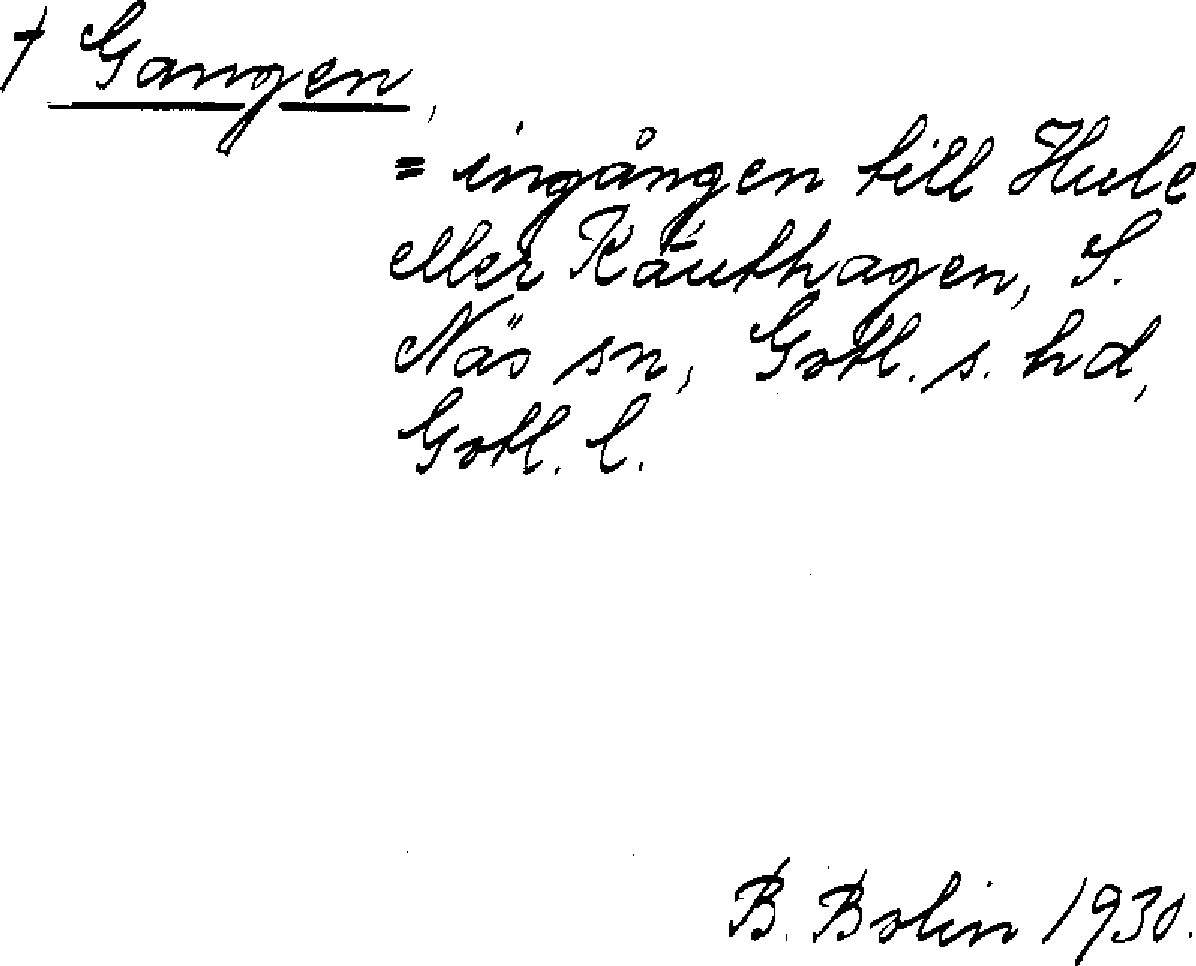 † Gangen,
= ingången till Hule
eller Käuthagen, S.
Näs sn, Gotl. s. hd,
Gotl. l.
B. Bolin 1930.